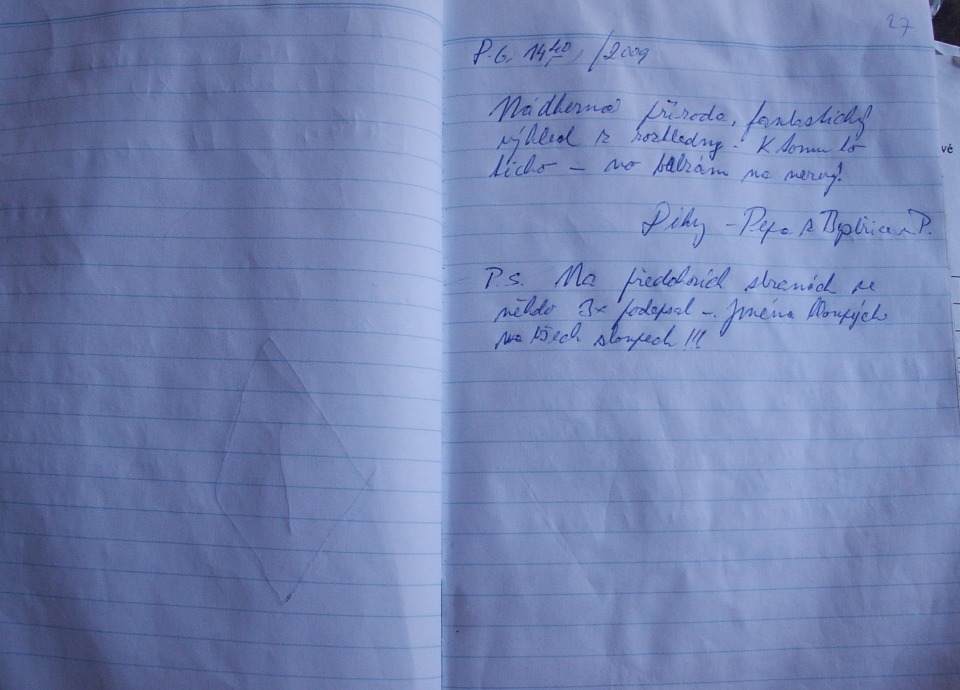 27
8.6. 14 40, /2009
Nádherná příroda, fantastický
výhled z rozhledny. K tomu to
ticho – no balzám na nervy!
Díky – Pepa z Bystřice n. P.
P.S. Na předchozích stranách se
někdo 3x podepsal –. Jména hloupých
na všech sloupech !!!
vé